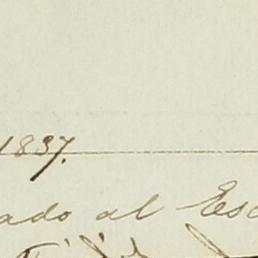 1837.
ado al Esc